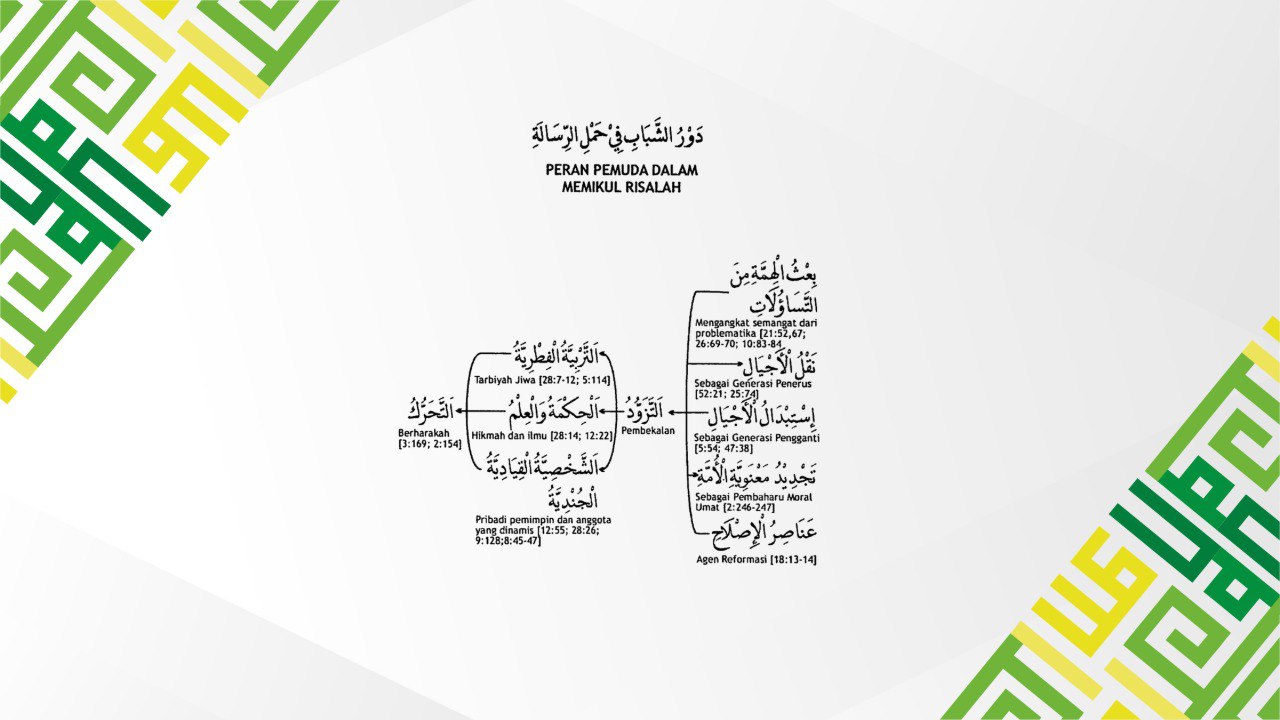 دَوْرُ الشَّبَابِ فِيْ حَمْلِ الرِّسَالَةِ
PERAN PEMUDA DALAM
MEMIKUL RISALAH
بِعْثُ الْهِمَّةِ مِنَ
التَّسَاؤُلَاتِ
Mengangkat semangat dari
problematika [21:52,67;
26:69-70; 10:83-84
نَقْلُ الْأَجْيَالِ
Sebagai Generasi Penerus
[52:21; 25:74]
إِسْتِبْدَالُ الْأَجْيَالِ
Sebagai Generasi Pengganti
[5:54; 47:38]
تَجْدِيْدُ مَعْنَوِيَّةِ الْأُمَّةِ
Sebagai Pembaharu Moral
Umat [2:246-247]
عَنَاصِرُ الْإِصْلَاحِ
Agen Reformasi [18:13-14]
اَلتَّزَوُّدُ
Pembekalan
اَلتَّرْبِيَّةُ الْفِطْرِيَّةُ
Tarbiyah Jiwa [28:7-12; 5:114]
اَلْحِكْمَةُ وَالْعِلْمُ
Hikmah dan ilmu [28:14; 12:22]
اَلشَّخْصِيَّةُ الْقِيَادِيَّةُ
الْجُنْدِيَّةُ
Pribadi pemimpin dan anggota
yang dinamis [12:55; 28:26;
9:128;8:45-47]
اَلتَّحَرُّكُ
Berharakah
[3:169; 2:154]